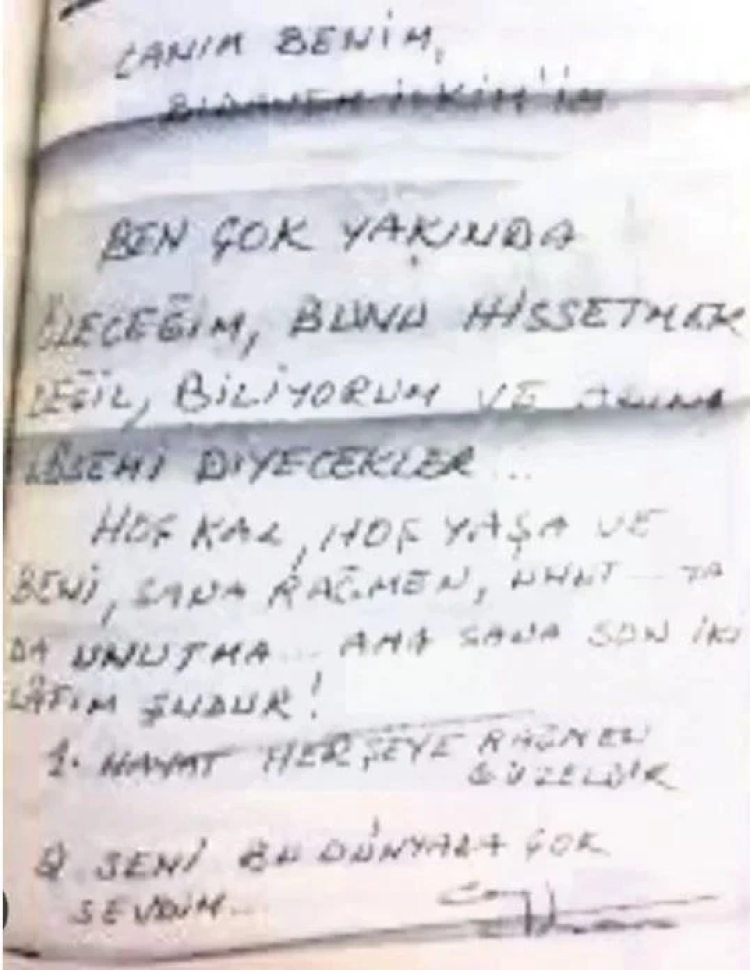 CANIM BENİM,
BİTANEM İLKİM'İM
BEN ÇOK YAKINDA
ÖLECEĞİM, BUNU HİSSETMEK
DEĞİL, BİLİYORUM VE ADINA
LÖSEMİ DİYECEKLER...
HOŞ KAL, HOŞ YAŞA VE
BENİ, SANA RAĞMEN, UNUT... YA
DA UNUTMA... AMA SANA SON İKİ
LÂFIM ŞUDUR!
1. HAYAT HERŞEYE RAĞMEN
GÜZELDİR
2 SENİ BU DÜNYADA ÇOK
SEVDİM...